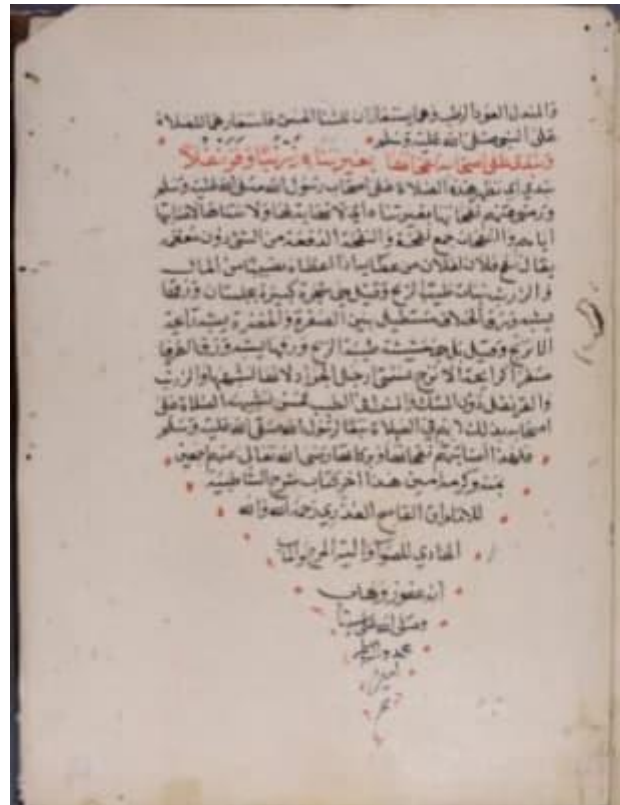 والمندل العود الرطب وهما يستعاران للثنا الحسن فاستعارهما للصلاة
على النبي صلى الله عليه وسلم
وتبدي على اصحابه نفحاتها بغير تناه زرنبا وقرنفلا
تبدي اي تظهر هذه الصلاة على اصحاب رسول الله صلى الله عليه وسلم
ورضي عنهم نفحاتها بغير تناه اي لا
والنفحات جمع نفحة والنفحة الدفعة من الشي دون معظمه
يقال نفح فلان لفلان من عطايه اذا اعطاه نصيبا من المال
والزرنب نبات طيب الريح وقيل هي شجرة كبيرة بجبل لبنان ورقها
يشبه ورق الخلاف مستطيل بين الصفرة والخضرة يشبه رائحة
الاترج وقيل بل هي حشيشة طيبة الريح ورقها يشبه ورق الطرفا
صفرا كرائحة الاترج تسمى رجل الجراد لانها تشبهها والزرنب
والقرنفل دون المسك والمندل في الطيب فحسن تشبيه الصلاة على
اصحابه بذلك لانهم في الصلاة تبعا لرسول الله صلى الله عليه وسلم
فلهذا اصابتهم نفحاتها وبركاتها رضي الله تعالى عنهم اجمعين
بمنه وكرمه امين هذا اخر كتاب شرح الشاطبية
للامام ابن القاصح العذري رحمه الله والله
الهادي للصواب واليه المرجع والماب
انه غفور وهاب
وصلى الله على سيدنا
محمد واله
امين